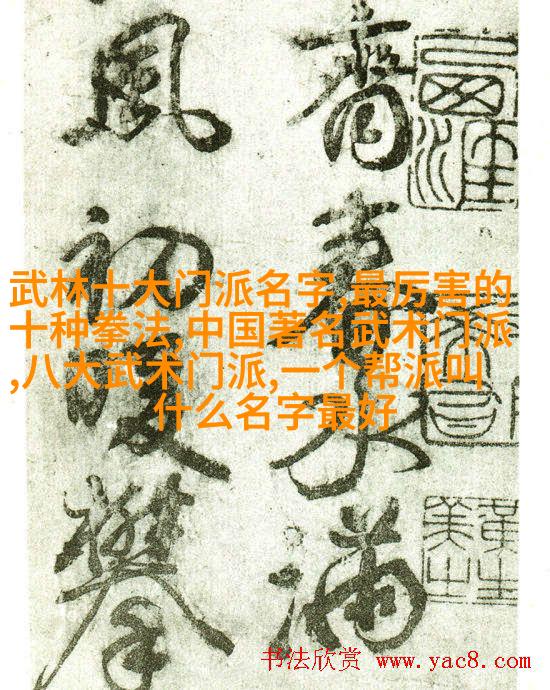 齋 滿
風初暖攀
武林十大门派名字,最厉害的
十种拳法,中国著名武术门派
,八大武术门派,一个帮派叫
什么名字最好
书法欣赏 www.yac8.com